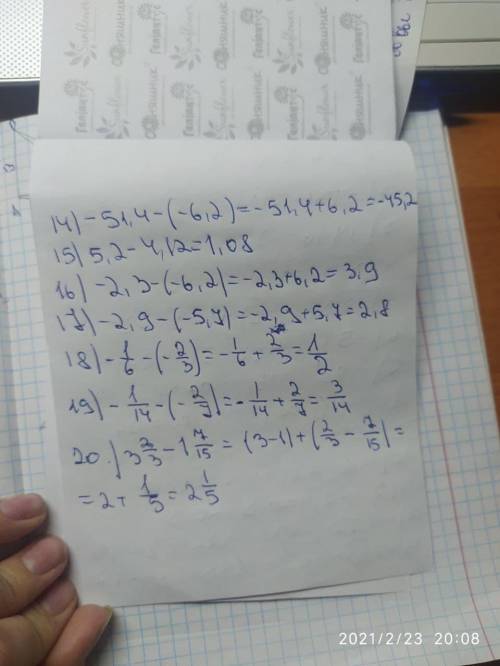 14) -51,4-(-6,2)=-51,4+6,2=-45,2
15) 5,2-4,12=1,08
16) -2,3-(-6,2)=-2,3+6,2=3,9
17) -2,9-(-5,7)=-2,9+5,7=2,8
18) -1/6-(-2/3)=-1/6+2/3=1/2
19) -1/14-(-2/7)=-1/14+2/7=3/14
20.) 3 2/3-1 7/15=(3-1)+(2/3-7/15)=
=2+1/5=2 1/5
2021/2/23 20:08